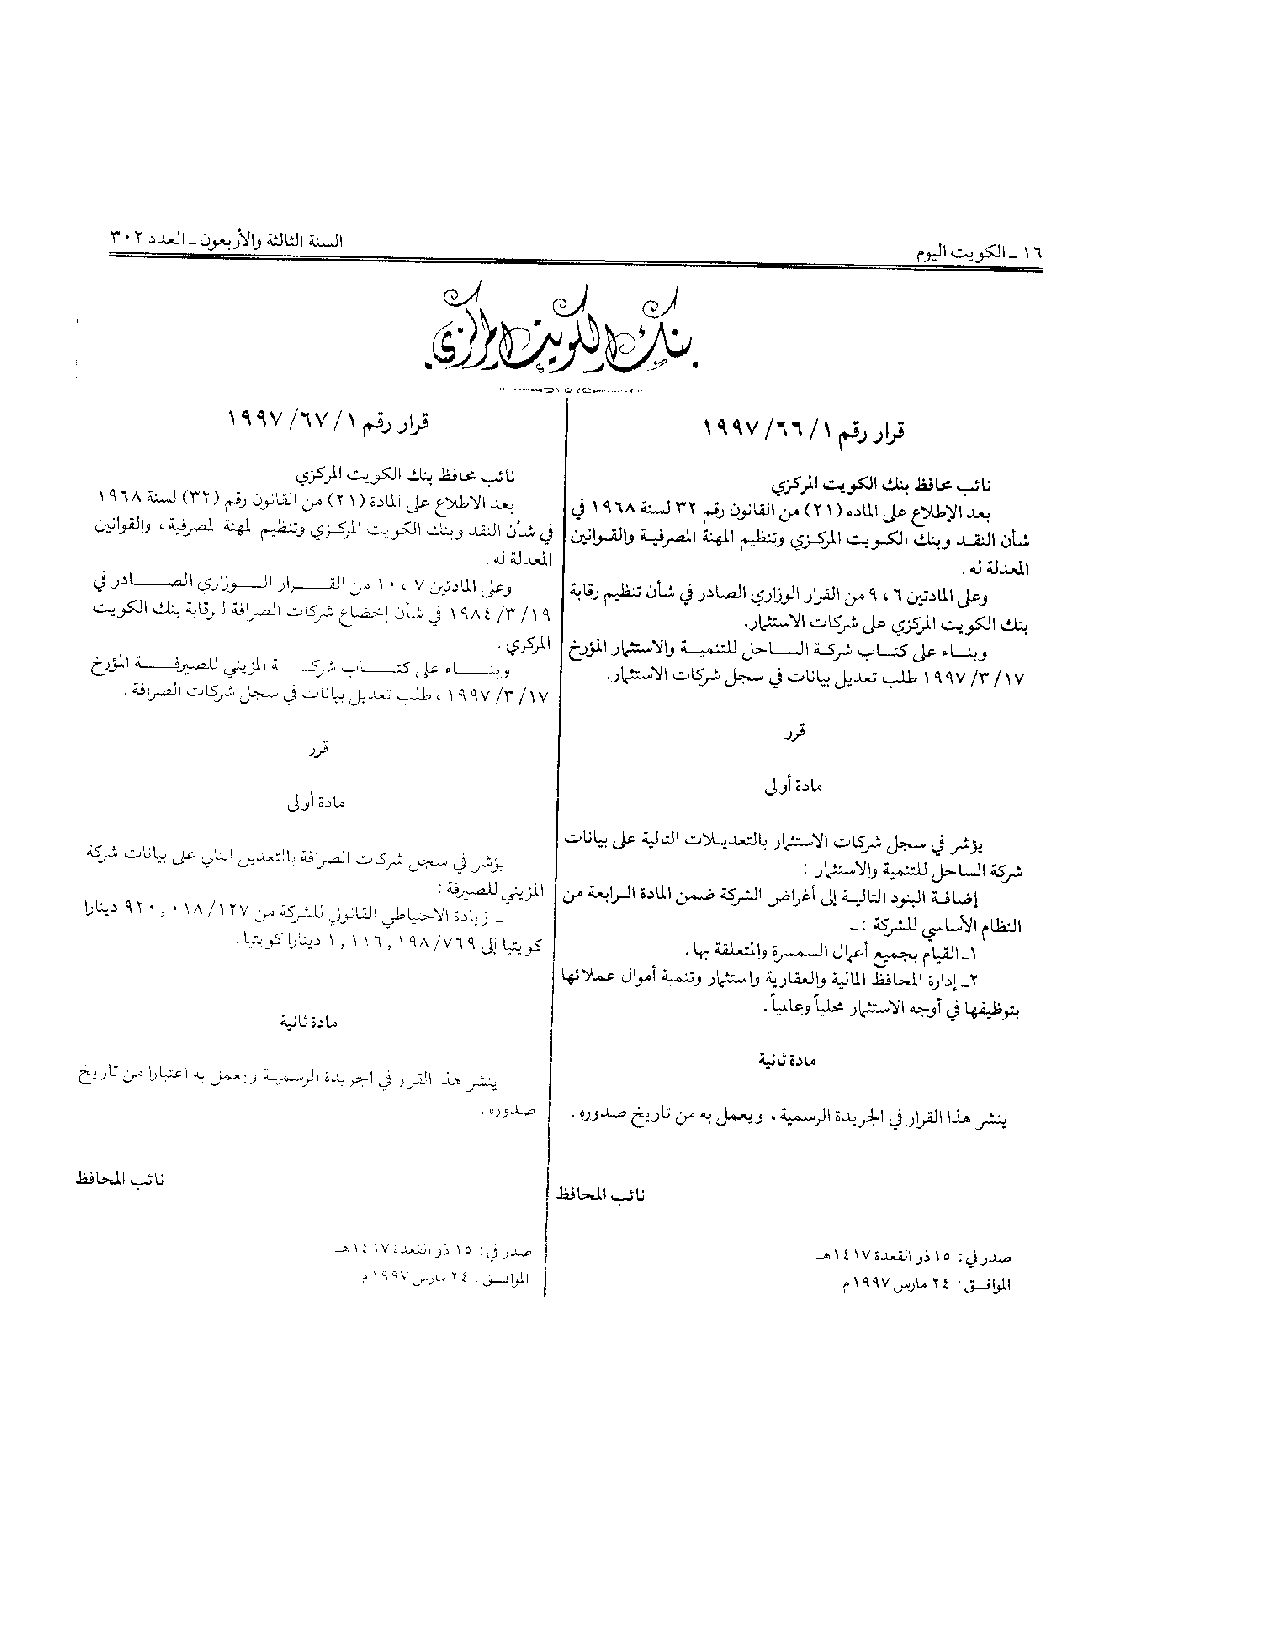 ١٦ ـ الكويت اليوم
السنة الثالثة والأربعون ـ العدد ٣٠٢
بنك الكويت المركزي
قرار رقم ١/ ٦٦/ ١٩٩٧
نائب محافظ بنك الكويت المركزي
بعد الإطلاع على المادة (٢١) من القانون رقم ٣٢ لسنة ١٩٦٨ في
شأن النقد وبنك الكويت المركزي وتنظيم المهنة المصرفية والقوانين
المعدلة له .
وعلى المادتين ٦ ، ٩ من القرار الوزاري الصادر في شأن تنظيم رقابة
بنك الكويت المركزي على شركات الاستثمار.
وبناء على كتاب شركة الساحل للتنمية والاستثمار المؤرخ
١٧ /٣ /١٩٩٧ طلب تعديل بيانات في سجل شركات الاستثمار.
قرر
مادة أولى
يؤشر في سجل شركات الاستثمار بالتعديلات التالية على بيانات
شركة الساحل للتنمية والاستثمار :
إضافة البنود التالية إلى أغراض الشركة ضمن المادة الرابعة من
النظام الأساسي للشركة :ـ
١ـ القيام بجميع أعمال السمسرة والمتعلقة بها .
٢ـ إدارة المحافظ المالية والعقارية واستثمار وتنمية أموال عملائها
بتوظيفها في أوجه الاستثمار محلياً وعالمياً .
مادة ثانية
ينشر هذا القرار في الجريدة الرسمية ، ويعمل به من تاريخ صدوره .
نائب المحافظ
صدر في : ١٥ ذو القعدة ١٤١٧هـ
الموافق : ٢٤ مارس ١٩٩٧م
قرار رقم ١/ ٦٧/ ١٩٩٧
نائب محافظ بنك الكويت المركزي
بعد الاطلاع على المادة (٢١) من القانون رقم (٣٢) لسنة ١٩٦٨
في شأن النقد وبنك الكويت المركزي وتنظيم المهنة المصرفية ، والقوانين
المعدلة له .
وعلى المادتين ٧ ، ١٠ من القرار الوزاري الصادر في
١٩ /٣ /١٩٨٤ في شأن إخضاع شركات الصرافة لرقابة بنك الكويت
المركزي .
وبناء على كتاب شركة المزيني للصيرفة المؤرخ
١٧ /٣ /١٩٩٧ ، طلب تعديل بيانات في سجل شركات الصرافة .
قرر
مادة أولى
يؤشر في سجل شركات الصرافة بالتعديل التالي على بيانات شركة
المزيني للصيرفة :
ـ زيادة الاحتياطي القانوني للشركة من ٩٢٠,٠١٨/١٢٧ دينارا
كويتيا إلى ١,١١٦,١٩٨/٧٦٩ دينارا كويتيا .
مادة ثانية
ينشر هذا القرار في الجريدة الرسمية ويعمل به اعتبارا من تاريخ
صدوره .
نائب المحافظ
صدر في : ١٥ ذو القعدة ١٤١٧هـ
الموافق : ٢٤ مارس ١٩٩٧م